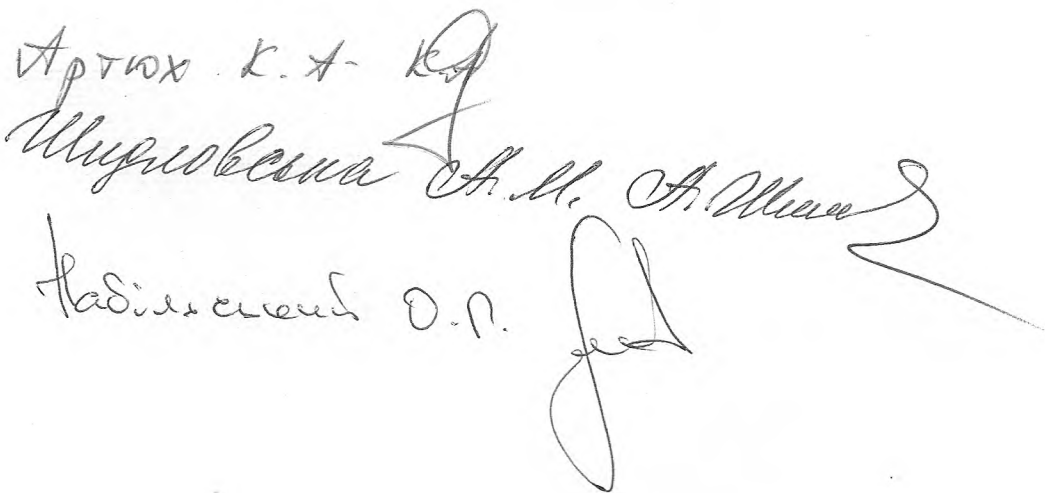 Артюх К. А.
Шидловська А. М. А. Шид
Набільський О. П.